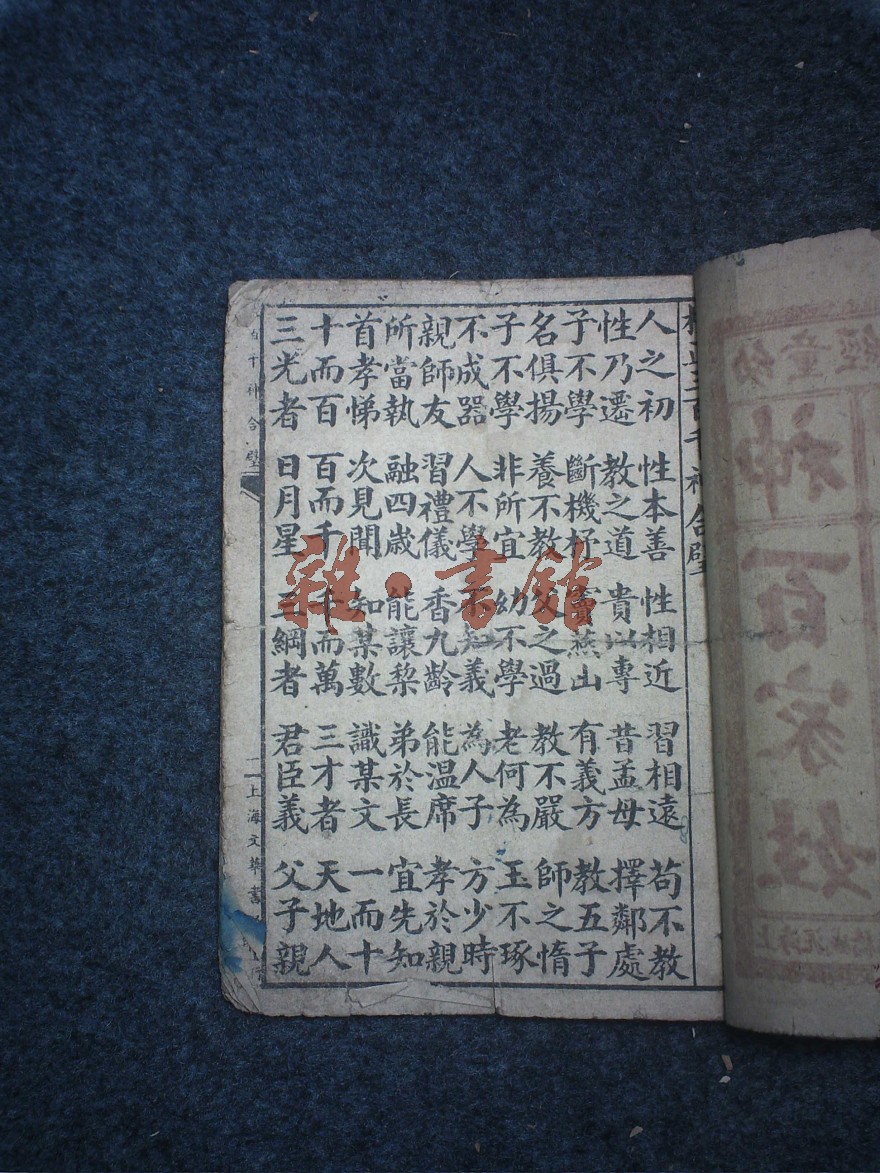 三百千神合璧
人之初 性本善 性相近 習相遠 苟不教
性乃遷 教之道 貴以專 昔孟母 擇鄰處
子不學 斷機杼 竇燕山 有義方 教五子
名俱揚 養不教 父之過 教不嚴 師之惰
子不學 非所宜 幼不學 老何為 玉不琢
不成器 人不學 不知義 為人子 方少時
親師友 習禮儀 香九齡 能溫席 孝於親
所當執 融四歲 能讓梨 弟於長 宜先知
首孝悌 次見聞 知某數 識某文 一而十
十而百 百而千 千而萬 三才者 天地人
三光者 日月星 三綱者 君臣義 父子親
千神合璧 二 上海文華書
神
百家姓
雜·書館